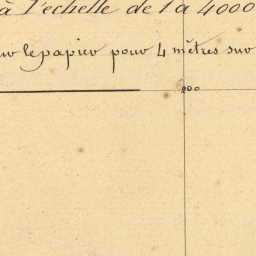 à l'echelle de 1 à 4000
sur le papier pour 4 mètres sur
200